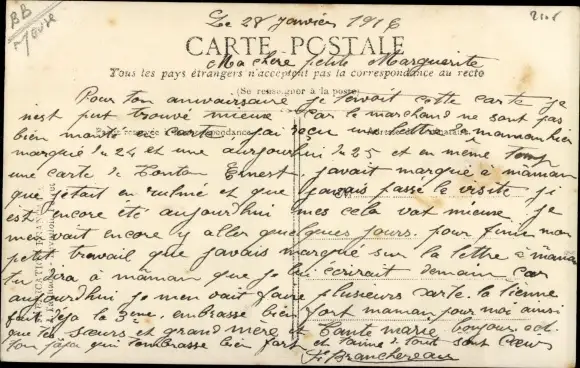 BB
Meuse
Le 28 janvier 1916
CARTE POSTALE
Ma chere petite Marguerite
Tous les pays étrangers n'acceptent pas la correspondance au recto
(Se renseigner à la poste)
Pour ton anniversaire je tenvoit cette carte je
nest put trouvé mieux car le marchand ne sont pas
bien monté en carte, j'ai reçu une lettre à maman hier
marqué du 24 et une aujourhui du 25 et en même temp
une carte de Tonton Ernest. javait marqué à maman
que jetait en rulmé et que javais passe la visite ji
est encore été aujourdhui mes cela vat mieux. je
men vait encore y aller quelques jours. pour finir mon
petit travail que javais marqué sur la lettre à maman
tu dira à maman que je lui ecrirait demain car
aujourdhui je men vait faire plusieurs carte. la tienne
fait déja la 3ème. embrasse bien fort maman pour moi ainsi
que tes sœurs et grand mere et tante marie bonjour
ton papa qui tembrasse bien fort et taime de tout sont cœur
Branchereau